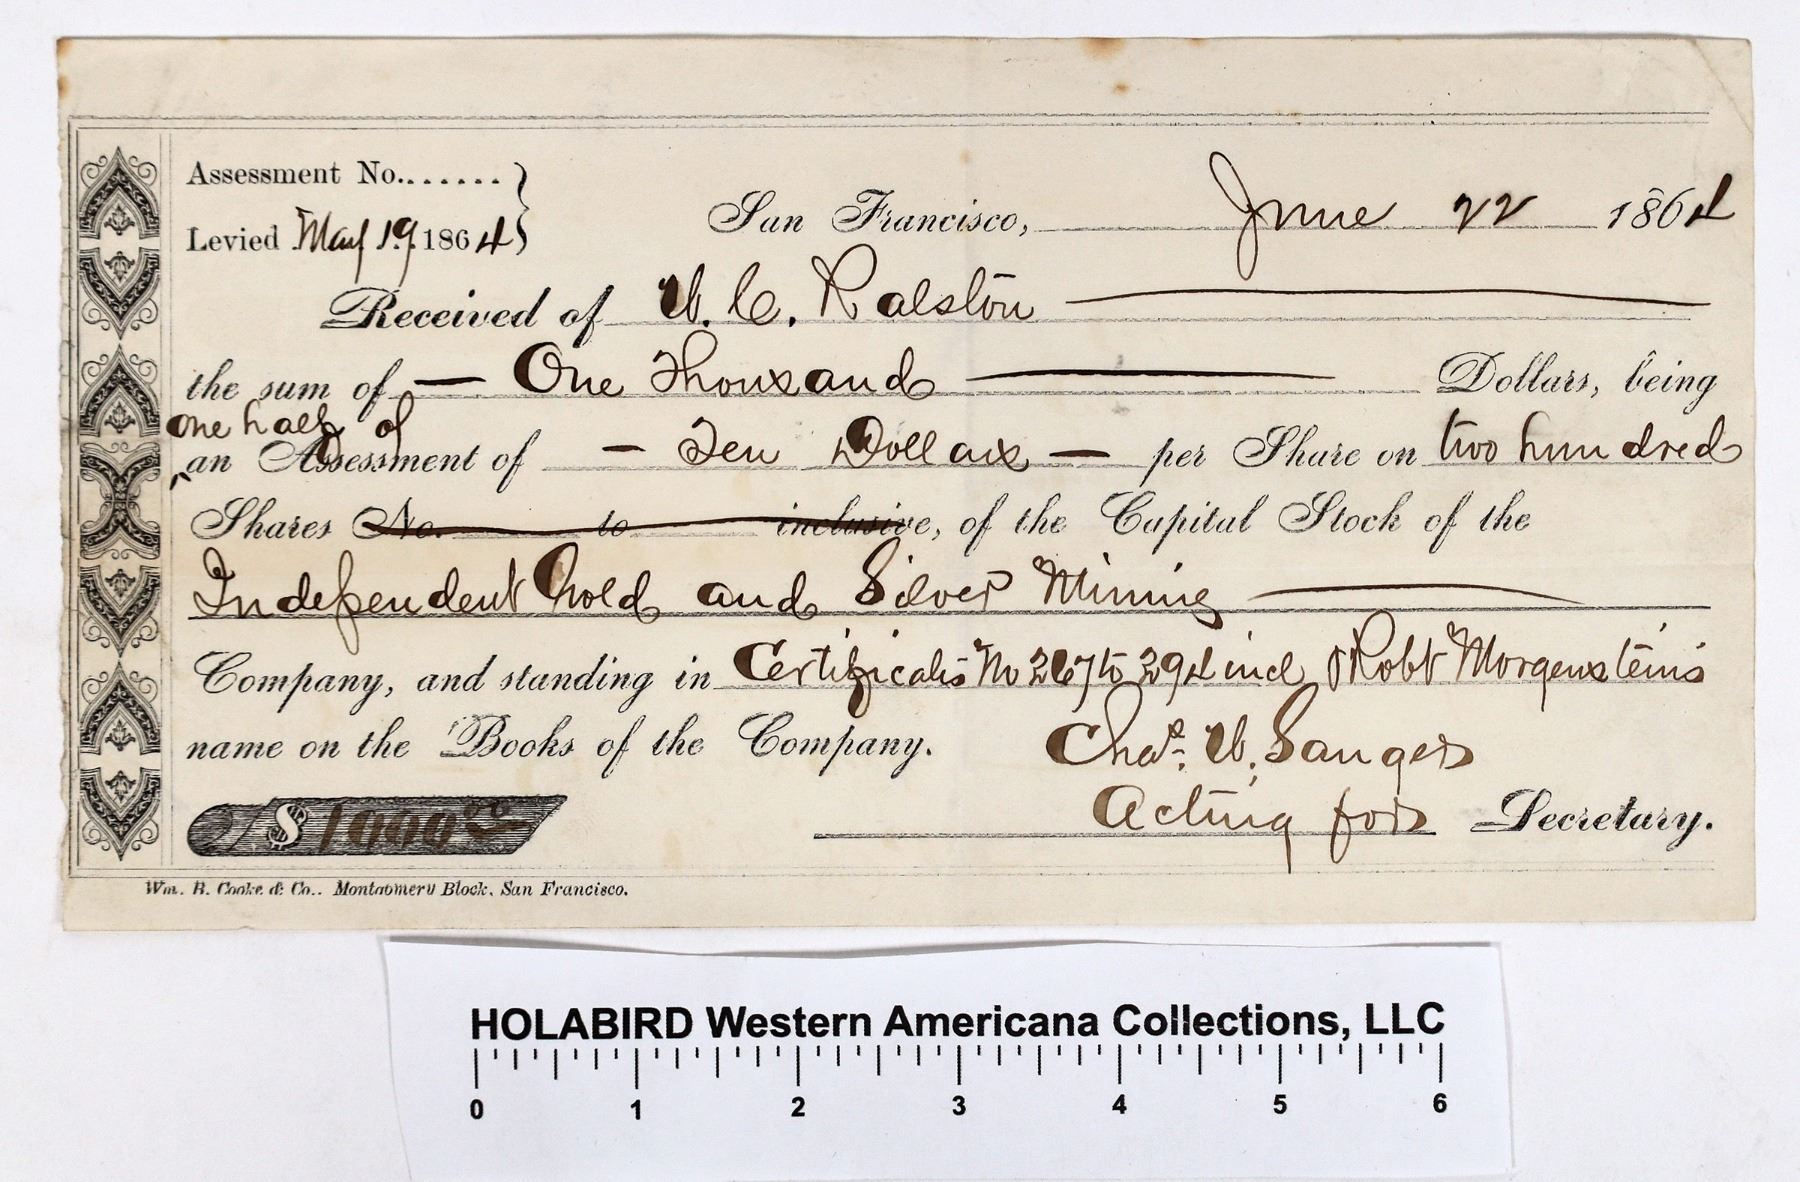 Assessment No.......
Levied May 19 1864
San Francisco, June 22 1864
Received of W. C. Ralston
the sum of One Thousand Dollars, being
one half of
an Assessment of Ten Dollars per Share on two hundred
Shares No. to inclusive, of the Capital Stock of the
Independent Gold and Silver Mining
Company, and standing in Certificates No 267 to 294 incl Robt Morgenstein's
name on the Books of the Company.
Chas. W. Sanger
Acting for Secretary.
$1000
Wm. B. Cooke & Co., Montgomery Block, San Francisco.
HOLABIRD Western Americana Collections, LLC
0 1 2 3 4 5 6